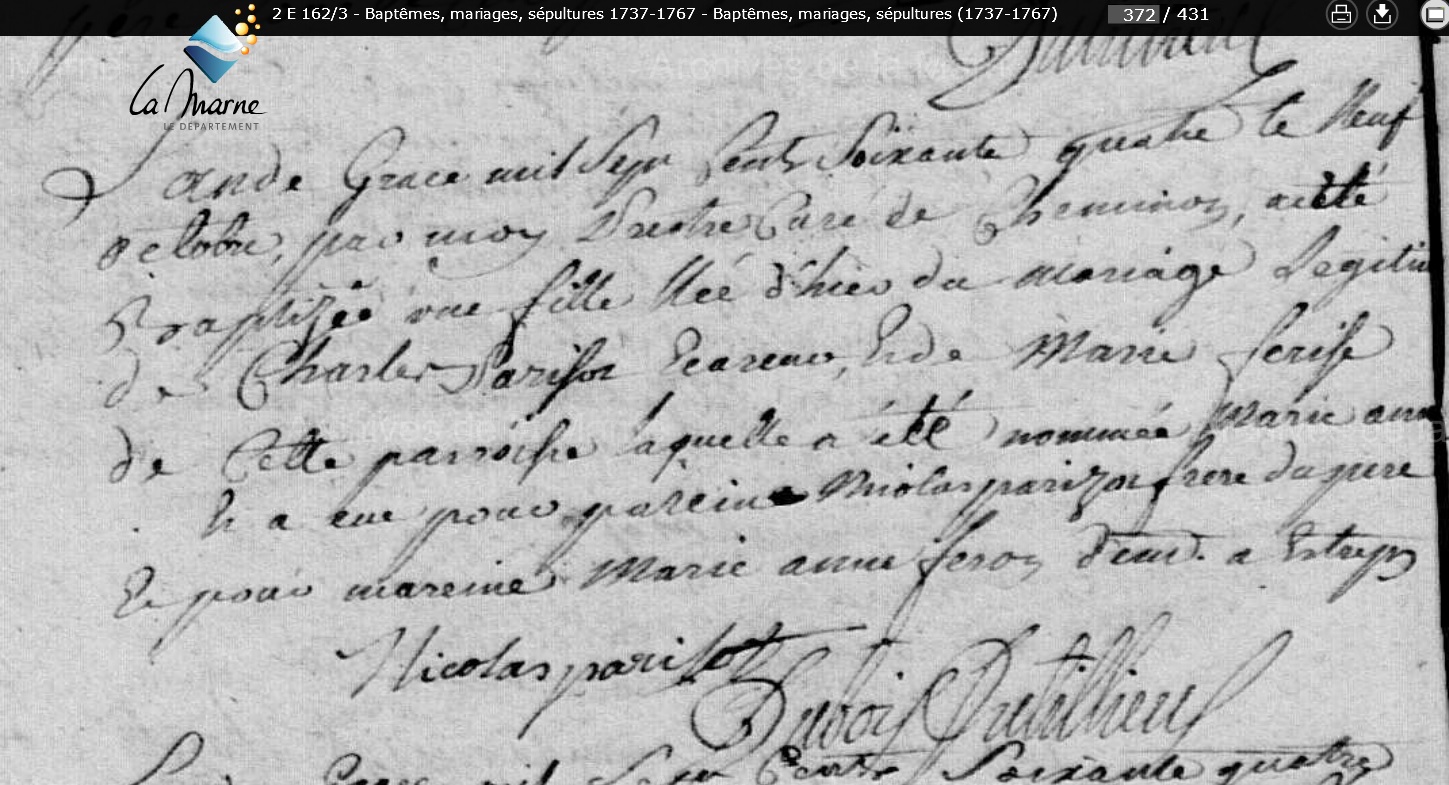 2 E 162/3 - Baptêmes, mariages, sépultures 1737-1767 - Baptêmes, mariages, sépultures (1737-1767) 372 / 431
La Marne
LE DÉPARTEMENT
Lan de Grace mil Sept Cents Soixante quatre le Neuf
octobre, par moy Prestre Curé de Cheminon, a été
Baptizée une fille Née d'hier du mariage Legitim
de Charles Parisot et de Marie
de Cette parroisse laquelle a été nommée Marie anne
Et a eue pour parein Nicolas parizot frere du pere
Et pour mareine Marie anne feron dem. a Estrepy
Nicolas parisot
Dubois Dutillieul
Grace mil Sept Cents Soixante quatre